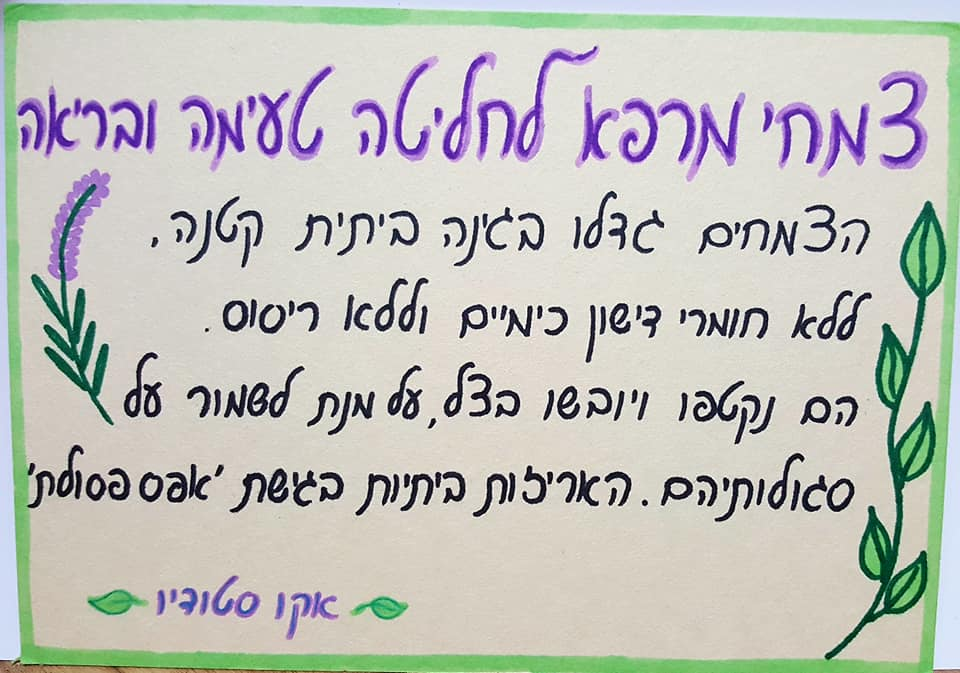 צמחי מרפא לחליטה טעימה ובריאה
הצמחים גדלו בגינה ביתית קטנה,
ללא חומרי דישון כימיים וללא ריסוס.
הם נקטפו ויובשו בצל, על מנת לשמור על
סגולותיהם. האריזות ביתיות בגישת 'אפס פסולת'
אקו סטודיו